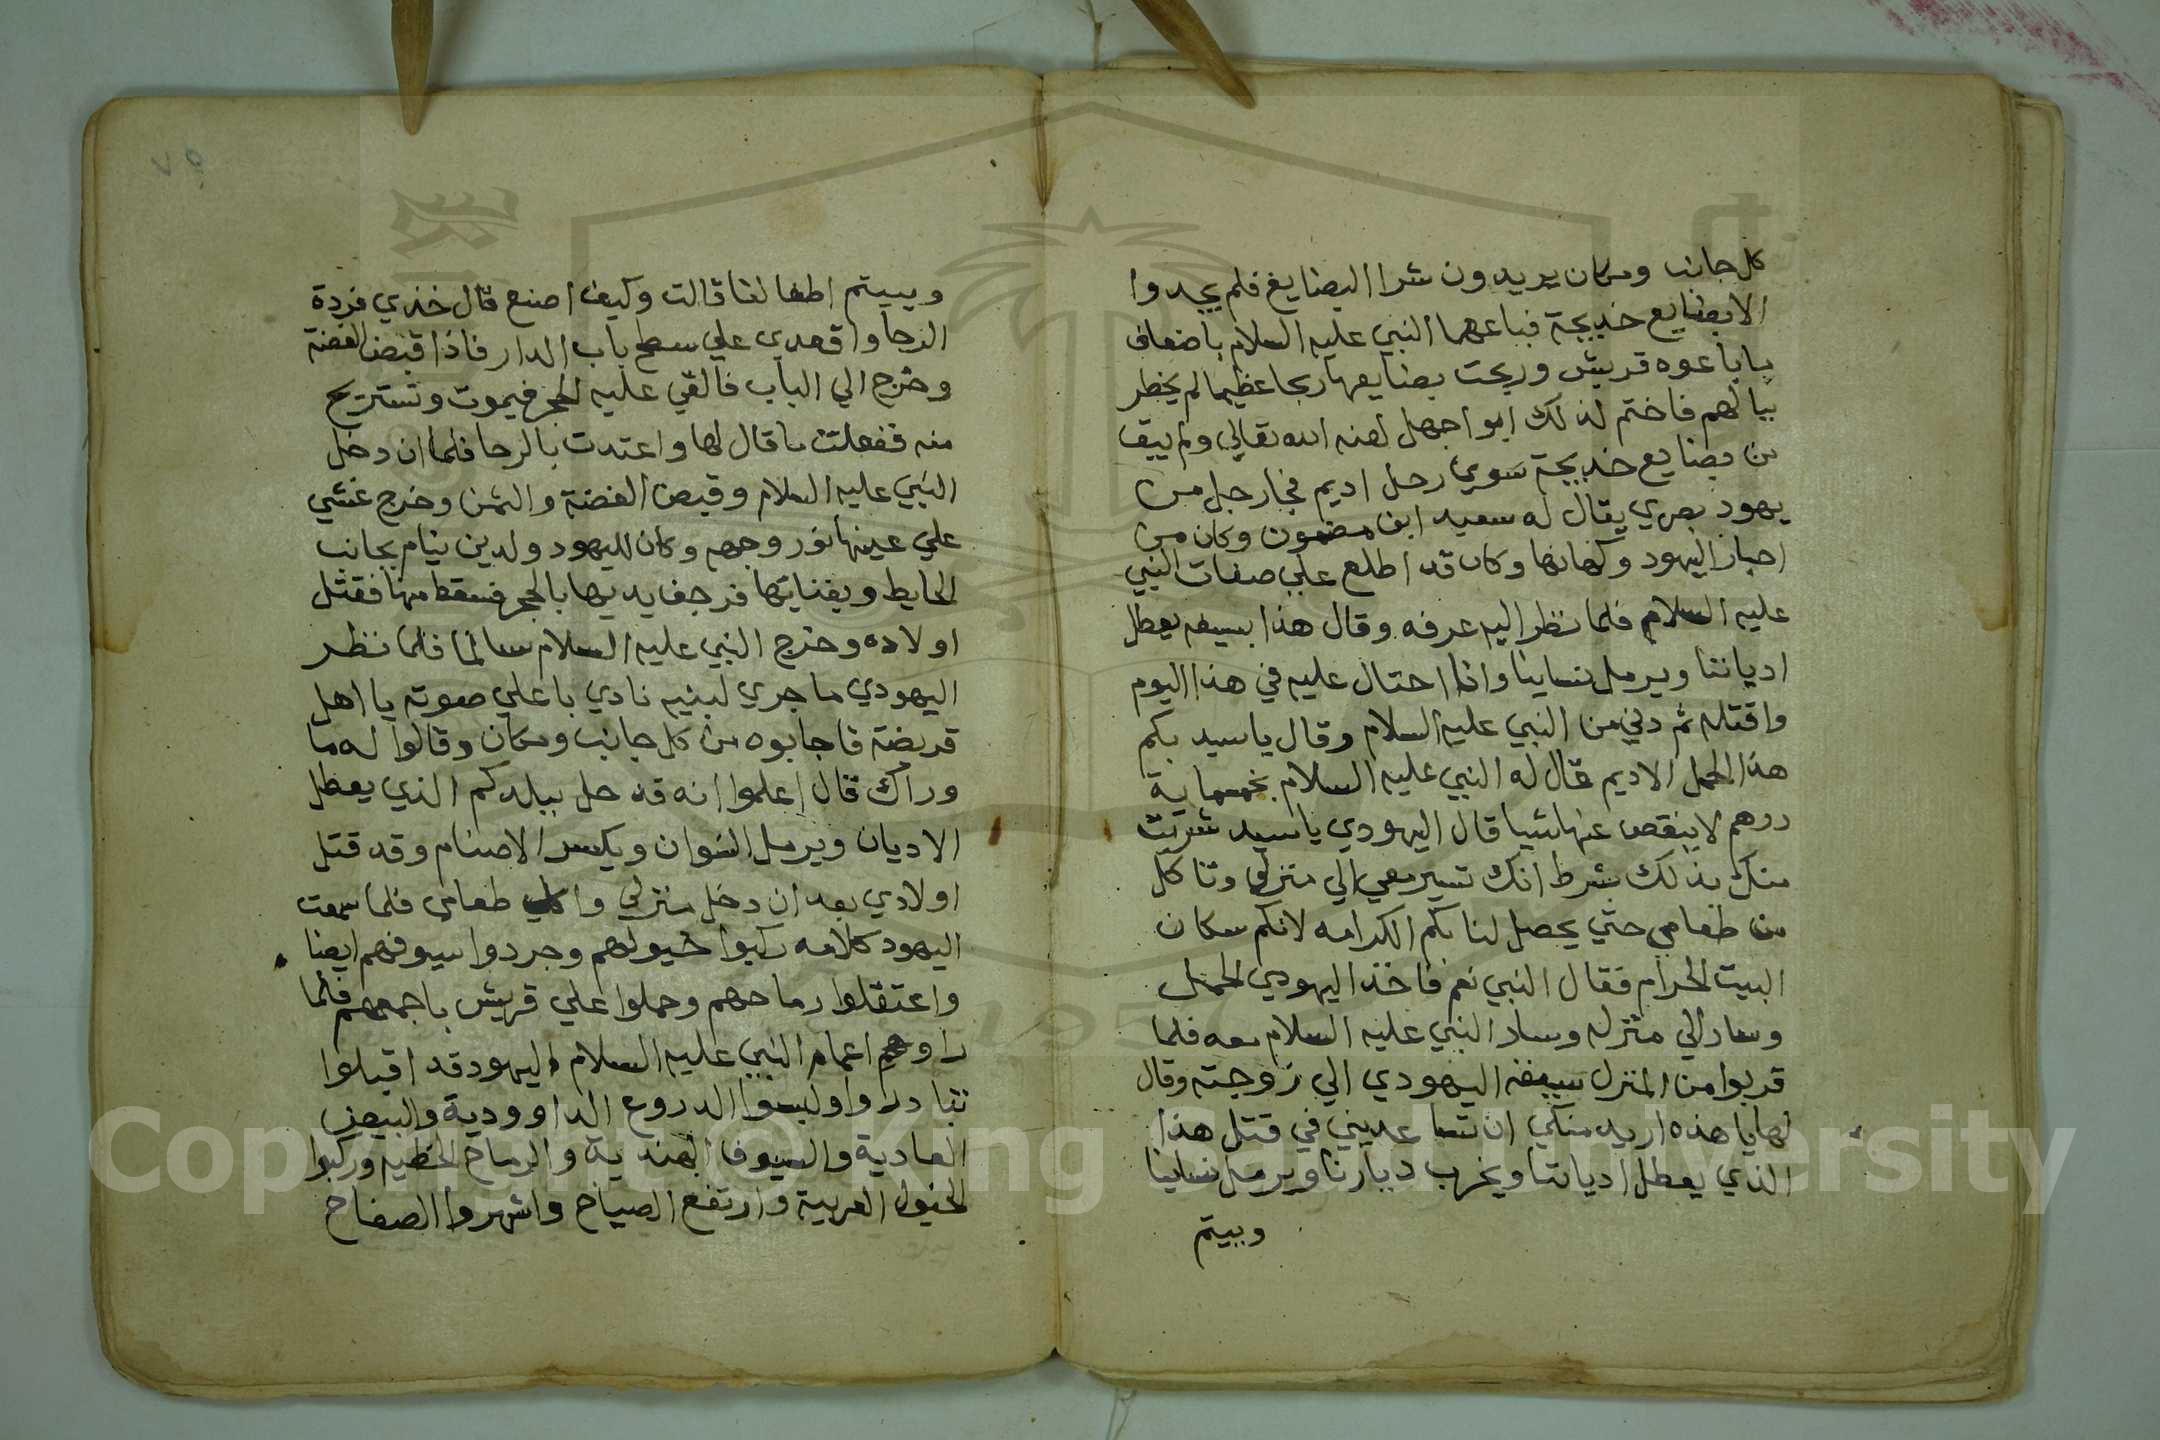 كل جانب ومكان يريدون شرا البضايع فلم يجدوا
الابضايع خديجة فباعها النبي عليه السلام باضعاف
ما باعوه قريش وربحت بضايعها ربحا عظيما لم يخطر
ببالهم فاختم لذلك ابوا جهل لعنه الله تعالي ولم يبق
من بضايع خديجة سوي رحل اديم فجا رجل من
يهود بصري يقال له سعيد ابن مضمون وكان من
احبار اليهود وكهانها وكان قد اطلع علي صفات النبي
عليه السلام فلما نظر اليه عرفه وقال هذا بسيفه يعطل
ادياننا ويرمل نساينا وانا احتال عليه في هذا اليوم
واقتله ثم دني من النبي عليه السلام وقال يا سيد بكم
هذا الحمل الاديم فقال له النبي عليه السلام بخمسماية
درهم لا ينقص عنها شيا قال اليهودي يا سيد شريت
منك بذلك بشرط انك تسير معي الي منزلي وتاكل
من طعامي حتي يحصل لنا بكم الكرامه لانكم سكان
البيت الحرام فقال النبي نعم فاخذ اليهودي الحمل
وسار الي منزله وسار النبي عليه السلام معه فلما
قربوا من المنزل سبقه اليهودي الي زوجته وقال
لها يا هذه اريد منكي ان تساعديني في قتل هذا
الذي يعطل ادياننا ويخرب ديارنا ويرمل نساينا
وييتم
٧٥
وييتم اطفالنا قالت وكيف اصنع قال خذي فردة
الرحا واقعدي علي سطح باب الدار فاذا قبض الفضة
وخرج الي الباب فالقي عليه الحجر فيموت ونستريح
منه ففعلت ما قال لها واعتدت بالرحا فلما ان دخل
النبي عليه السلام وقبض الفضة والثمن وخرج غشي
علي عينها نور وجهه وكان لليهود ولدين نيام بجانب
الحايط وبفنايها فرجف يديها بالحجر فسقط منها فقتل
اولاده وخرج النبي عليه السلام سالما فلما نظر
اليهودي ما جري لبنيه نادي باعلي صوته يا اهل
قريضة فاجابوه من كل جانب ومكان وقالوا له ما
وراك قال اعلموا انه قد حل ببلدكم الذي يعطل
الاديان ويرمل النسوان ويكسر الاصنام وقد قتل
اولادي بعد ان دخل منزلي واكل طعامي فلما سمعت
اليهود كلامه ركبوا خيولهم وجردوا سيوفهم ايضا
واعتقلوا رماحهم وحملوا علي قريش باجمعهم فلما
راوهم اعمام النبي عليه السلام اليهود قد اقبلوا
تبادروا ولبسوا الدروع الداوودية والبيض
العادية والسيوف الهندية والرماح الخطيه وركبوا
الخيول العربية وارتفع الصياح واشهروا الصفاح
Copyright © King Saud University